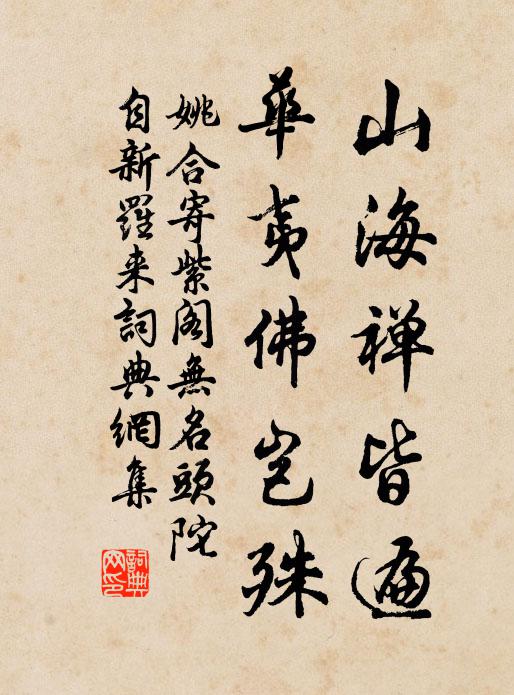 山海禅皆遍
華夷佛豈殊
姚合寄紫閣無名頭陀
自新羅来詞典網集
詞典网印